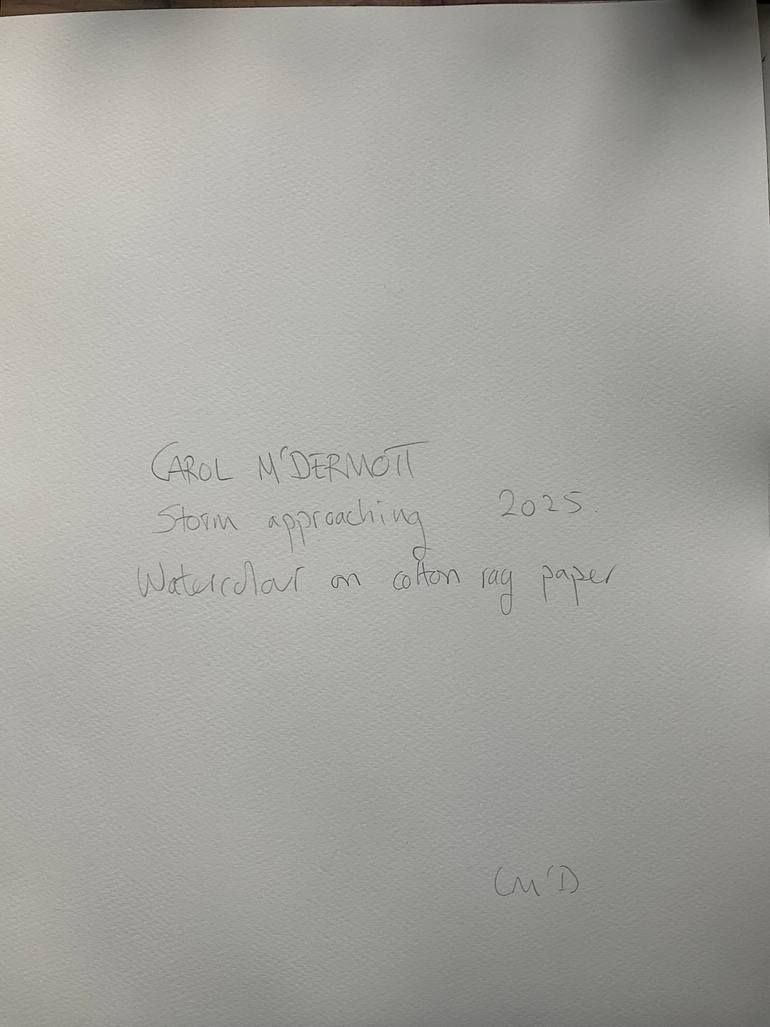 CAROL McDERMOTT
Storm approaching 2025.
Watercolour on cotton rag paper
CMcD